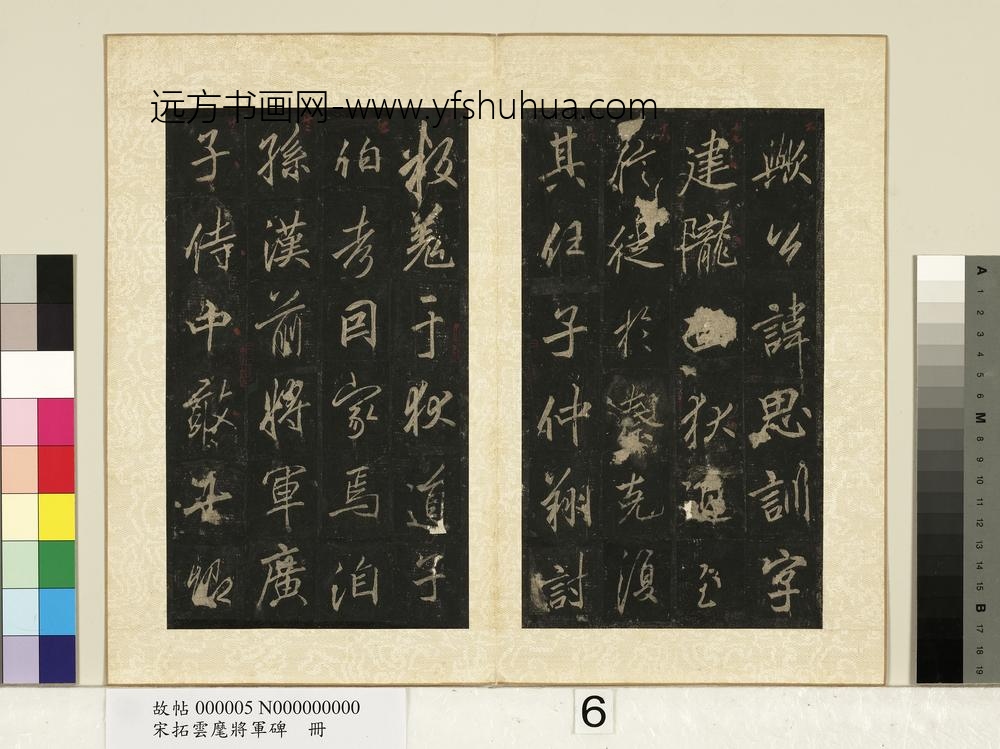 远方书画网-www.yfshuhua.com
歟公諱思訓字
建隴西狄道至
於徙於
克復
其任子仲翔討
叛羌于狄道子
伯考因家焉洎
孫漢前將軍廣
子侍中敢
故帖 000005 N000000000
宋拓雲麾將軍碑 冊
6
A 1 2 3 4 5 M 8 9 10 11 12 13 14 15 B 17 18 19